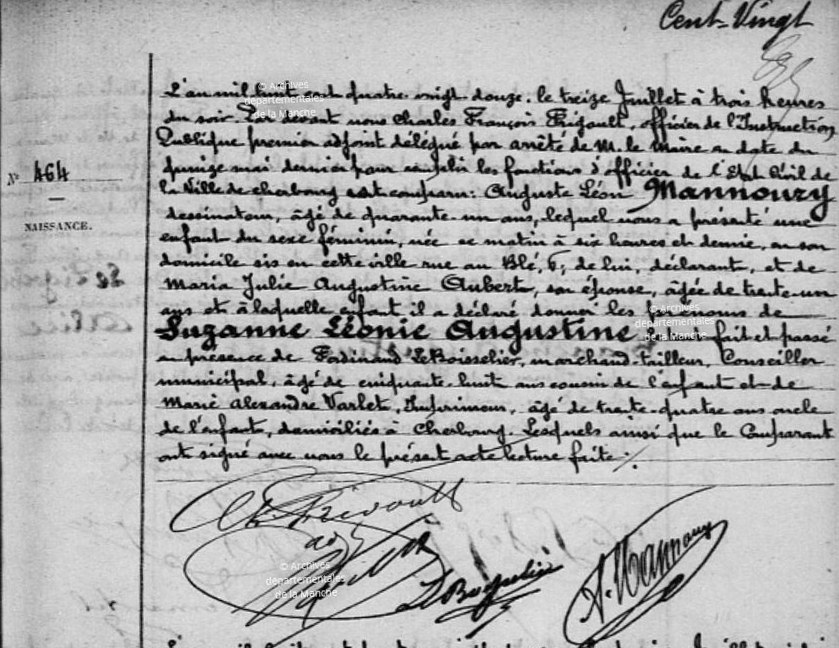 Cent-Vingt
L'an mil huit cent quatre-vingt-douze, le treize Juillet à trois heures
du soir Par devant nous Charles François Frigoult, officier de l'Instruction
Publique premier adjoint délégué par arrêté de M. le Maire en date du
quinze mai dernier pour remplir les fonctions d'officier de l'Etat Civil de
la Ville de Cherbourg est comparu: Auguste Léon Mannoury
dessinateur, âgé de quarante-un ans, lequel nous a présenté une
enfant du sexe féminin, née ce matin à six heures et demie, en son
domicile sis en cette ville rue au Blé, 6, de lui, déclarant, et de
Maria Julie Augustine Aubert, son épouse, âgée de trente-un
ans et à laquelle enfant il a déclaré donner les prénoms de
Suzanne Léonie Augustine fait et passé
en présence de Ferdinand LeBoisselier, marchand-tailleur, Conseiller
municipal, âgé de cinquante-huit ans cousin de l'enfant et de
Marie Alexandre Varlet, Imprimeur, âgé de trente-quatre ans oncle
de l'enfant, domiciliés à Cherbourg. Lesquels ainsi que le Comparant
ont signé avec nous le présent acte lecture faite ./.
N° 464
NAISSANCE.
© Archives
départementales
de la Manche
© Archives
départementales
de la Manche
© Archives
départementales
de la Manche
A. Mannoury